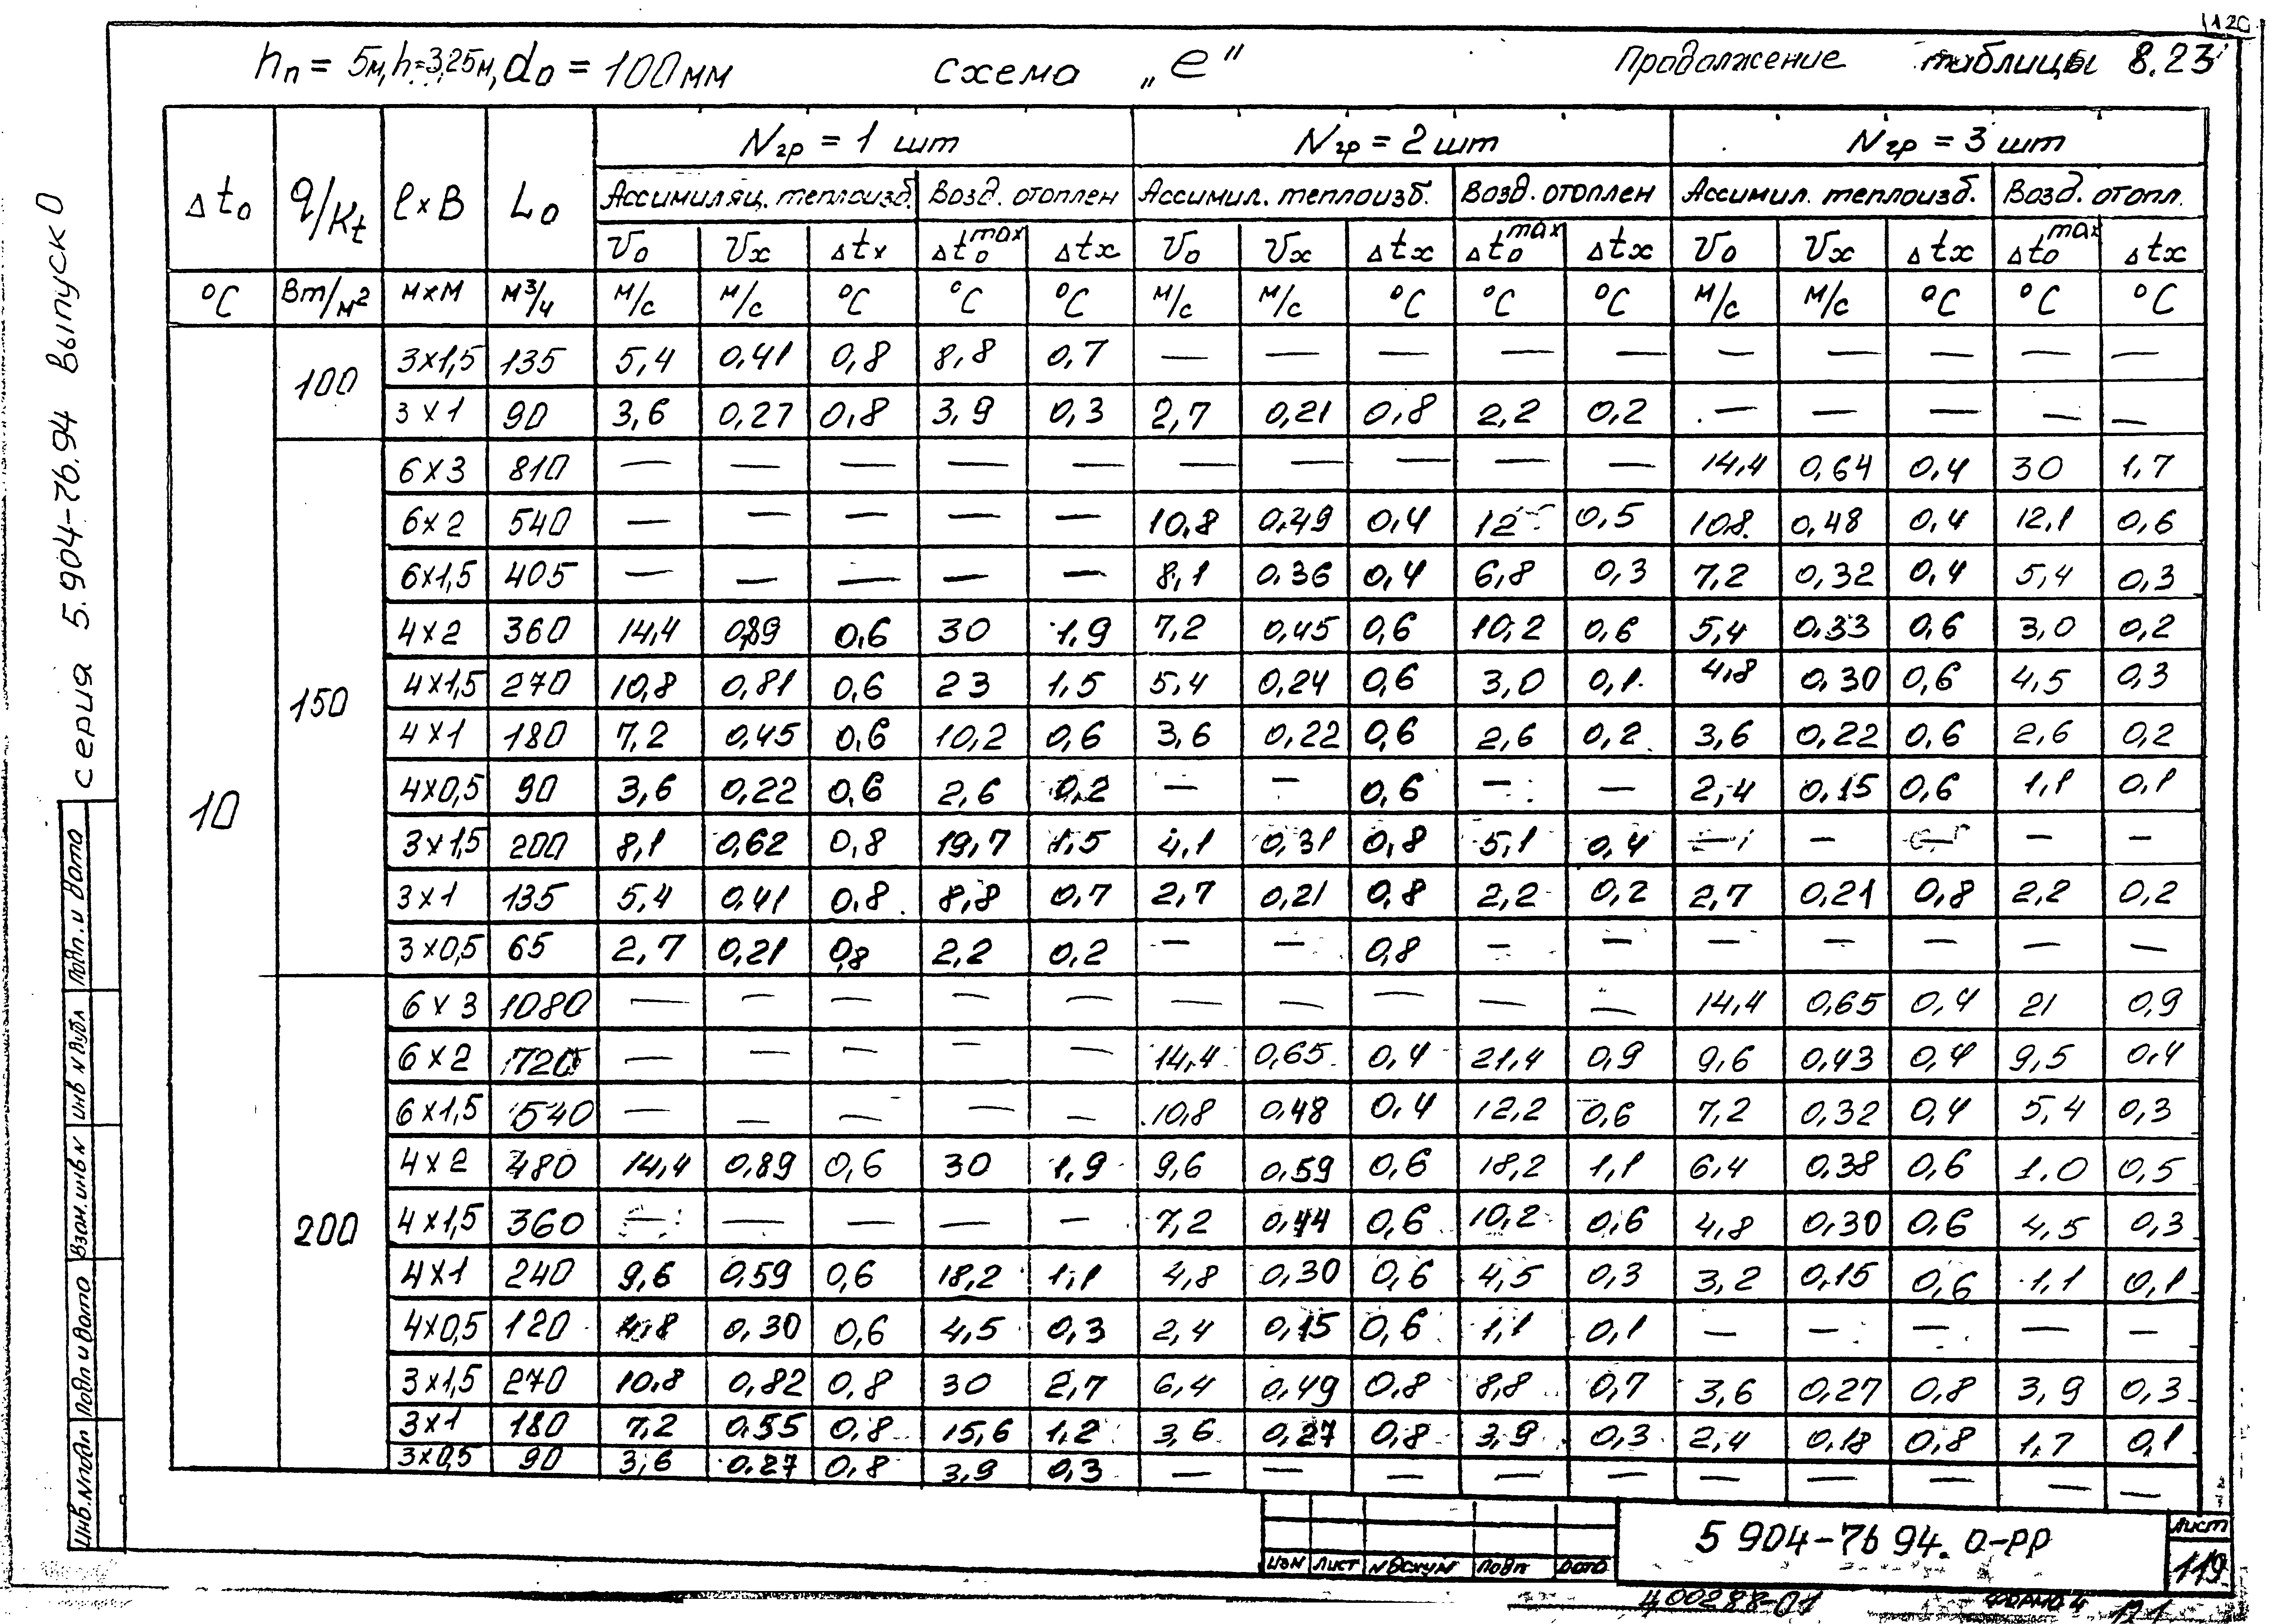 120
hп = 5м, h=3,25м, do = 100мм схема „е" Продолжение таблицы 8.23
Δto q/Kt l×B Lo Nгр = 1 шт Nгр = 2 шт Nгр = 3 шт
Ассимиляц. теплоизб. Возд. отоплен Ассимил. теплоизб. Возд. отоплен Ассимил. теплоизб. Возд. отопл.
Vo Vx Δtx Δto max Δtx Vo Vx Δtx Δto max Δtx Vo Vx Δtx Δto max Δtx
°C Вт/м² м×м м³/ч м/с м/с °C °C °C м/с м/с °C °C °C м/с м/с °C °C °C
10
100
3×1,5 135 5,4 0,41 0,8 8,8 0,7 — — — — — — — — — —
3×1 90 3,6 0,27 0,8 3,9 0,3 2,7 0,21 0,8 2,2 0,2 — — — — —
150
6×3 810 — — — — — — — — — — 14,4 0,64 0,4 30 1,7
6×2 540 — — — — — 10,8 0,49 0,4 12 0,5 10,8 0,48 0,4 12,1 0,6
6×1,5 405 — — — — — 8,1 0,36 0,4 6,8 0,3 7,2 0,32 0,4 5,4 0,3
4×2 360 14,4 0,89 0,6 30 1,9 7,2 0,45 0,6 10,2 0,6 5,4 0,33 0,6 3,0 0,2
4×1,5 270 10,8 0,81 0,6 23 1,5 5,4 0,24 0,6 3,0 0,1 4,8 0,30 0,6 4,5 0,3
4×1 180 7,2 0,45 0,6 10,2 0,6 3,6 0,22 0,6 2,6 0,2 3,6 0,22 0,6 2,6 0,2
4×0,5 90 3,6 0,22 0,6 2,6 0,2 — — 0,6 — — 2,4 0,15 0,6 1,1 0,1
3×1,5 200 8,1 0,62 0,8 19,7 1,5 4,1 0,31 0,8 5,1 0,4 — — — — —
3×1 135 5,4 0,41 0,8 8,8 0,7 2,7 0,21 0,8 2,2 0,2 2,7 0,21 0,8 2,2 0,2
3×0,5 65 2,7 0,21 0,8 2,2 0,2 — — 0,8 — — — — — — —
200
6×3 1080 — — — — — — — — — — 14,4 0,65 0,4 21 0,9
6×2 720 — — — — — 14,4 0,65 0,4 21,4 0,9 9,6 0,43 0,4 9,5 0,4
6×1,5 540 — — — — — 10,8 0,48 0,4 12,2 0,6 7,2 0,32 0,4 5,4 0,3
4×2 480 14,4 0,89 0,6 30 1,9 9,6 0,59 0,6 18,2 1,1 6,4 0,38 0,6 1,0 0,5
4×1,5 360 — — — — — 7,2 0,44 0,6 10,2 0,6 4,8 0,30 0,6 4,5 0,3
4×1 240 9,6 0,59 0,6 18,2 1,1 4,8 0,30 0,6 4,5 0,3 3,2 0,15 0,6 1,1 0,1
4×0,5 120 4,8 0,30 0,6 4,5 0,3 2,4 0,15 0,6 1,1 0,1 — — — — —
3×1,5 270 10,8 0,82 0,8 30 2,7 6,4 0,49 0,8 8,8 0,7 3,6 0,27 0,8 3,9 0,3
3×1 180 7,2 0,55 0,8 15,6 1,2 3,6 0,27 0,8 3,9 0,3 2,4 0,18 0,8 1,7 0,1
3×0,5 90 3,6 0,27 0,8 3,9 0,3 — — — — — — — — — —
серия 5.904-76.94 Выпуск 0
Подп. и дата
Инв N дубл
Взам. инв N
Подп и дата
Инв. N подл
Изм Лист N докум Подп Дата
5 904-76 94. 0-РР
Лист
119
Ц00288-01